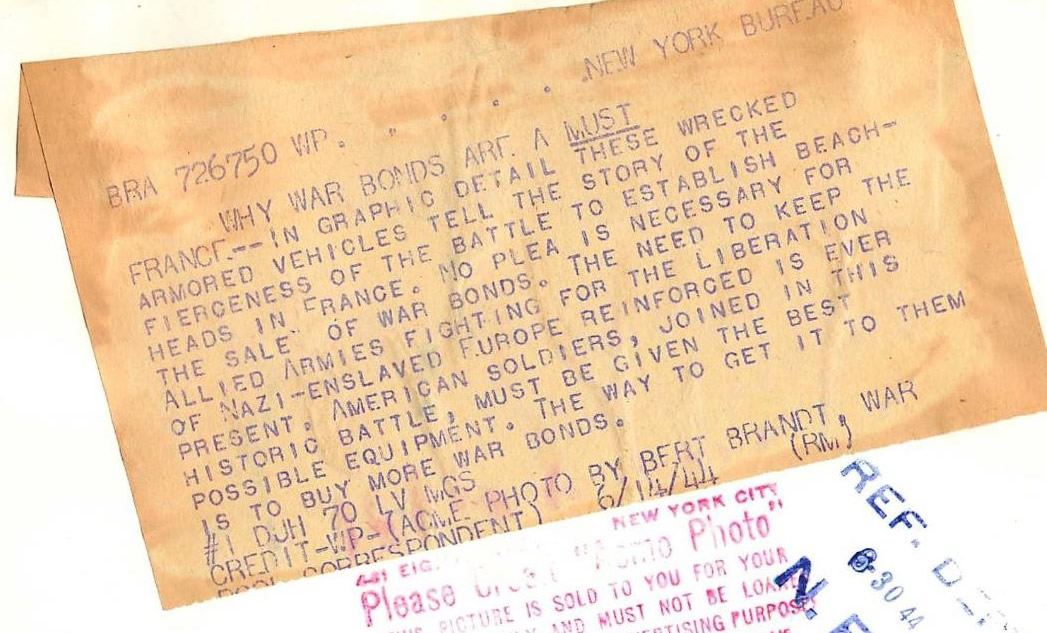 NEW YORK BUREAU
BRA 726750 WP. . . . .
WHY WAR BONDS ARE A MUST
FRANCE.--IN GRAPHIC DETAIL THESE WRECKED
ARMORED VEHICLES TELL THE STORY OF THE
FIERCENESS OF THE BATTLE TO ESTABLISH BEACH-
HEADS IN FRANCE. NO PLEA IS NECESSARY FOR
THE SALE OF WAR BONDS. THE NEED TO KEEP THE
ALLIED ARMIES FIGHTING FOR THE LIBERATION
OF NAZI-ENSLAVED EUROPE REINFORCED IS EVER
PRESENT. AMERICAN SOLDIERS, JOINED IN THIS
HISTORIC BATTLE, MUST BE GIVEN THE BEST
POSSIBLE EQUIPMENT. THE WAY TO GET IT TO THEM
IS TO BUY MORE WAR BONDS.
#1 DJH 70 LV MGS
CREDIT-WP-(ACME PHOTO BY BERT BRANDT, WAR
POOL CORRESPONDENT) 6/14/44 (RM)
NEW YORK CITY
Please "Acme Photo"
PICTURE IS SOLD TO YOU FOR YOUR
AND MUST NOT BE LOANED
ADVERTISING PURPOSES
REF.
6-30 44
N. E